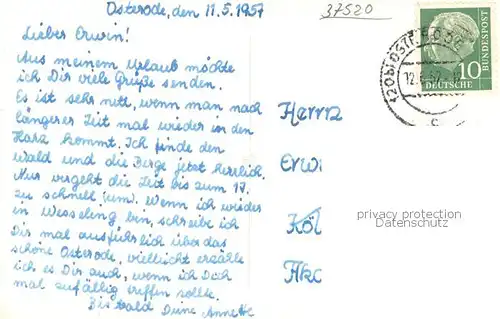 Osterode, den 11.5.1957
37520
Lieber Erwin!
Aus meinem Urlaub möchte
ich Dir viele Grüße senden.
Es ist sehr nett, wenn man nach
längerer Zeit mal wieder in den
Harz kommt. Ich finde den
Wald und die Berge jetzt herrlich.
Nur vergeht die Zeit bis zum 17.
zu schnell (um). Wenn ich wieder
in Wesseling bin, schreibe ich
Dir mal ausführlich über das
schöne Osterode, vielleicht erzähle
ich es Dir auch, wenn ich Dich
mal zufällig treffen sollte.
Bis bald Deine Annette
Herrn
Erwi
Köl
privacy protection
Datenschutz
10
DEUTSCHE
BUNDESPOST